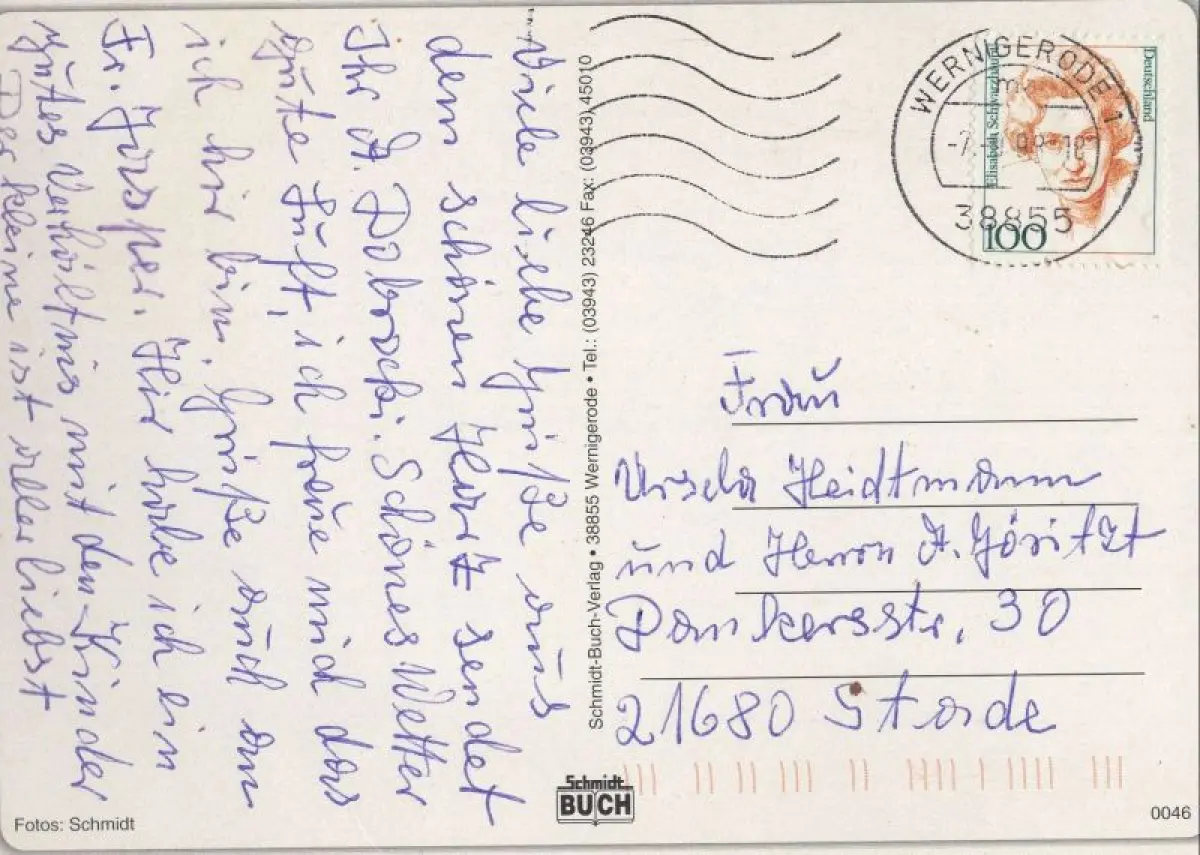 Viele liebe Grüße aus
dem schönen Harz sendet
Ihr A. Dobrocki. Schönes Wetter
gute Luft, ich freue mich das
ich hir bin. Grüße auch an
Fr. Jasper. Hir habe ich ein
gutes Verhöltnis mit den Kinder
Der kleine ist allerliebst
Schmidt-Buch-Verlag • 38855 Wernigerode • Tel.: (03943) 23246 Fax: (03943) 45010
WERNIGERODE 1
38855
Deutschland
Elisabeth Schwarzhaupt
100
Frau
Ursela Heidtmann
und Herrn A. Göritzt
Dankersstr. 30
21680 Stade
Schmidt
BUCH
Fotos: Schmidt
0046